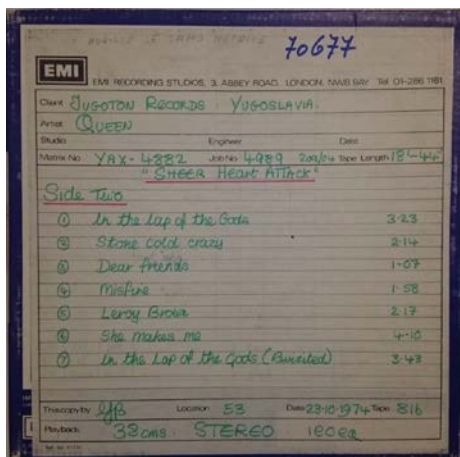 70677
EMI
EMI RECORDING STUDIOS, 3, ABBEY ROAD, LONDON, NW8 9AY. Tel 01-286 1181
Client JUGOTON RECORDS - YUGOSLAVIA.
Artist QUEEN
Studio Engineer Date
Matrix No YAX-4882 Job No 4989 Tape Length 18-44"
"SHEER Heart ATTACK"
Side Two
① In the Lap of the Gods 3.23
② Stone cold crazy 2.14
③ Dear friends 1.07
④ Misfire 1.58
⑤ Leroy Brown 2.17
⑥ She makes me 4-10
⑦ In the Lap of the Gods (Revisited) 3.43
This copy by Location 53 Date 23-10-1974 Tape 816
Playback 38cms. STEREO ieceq